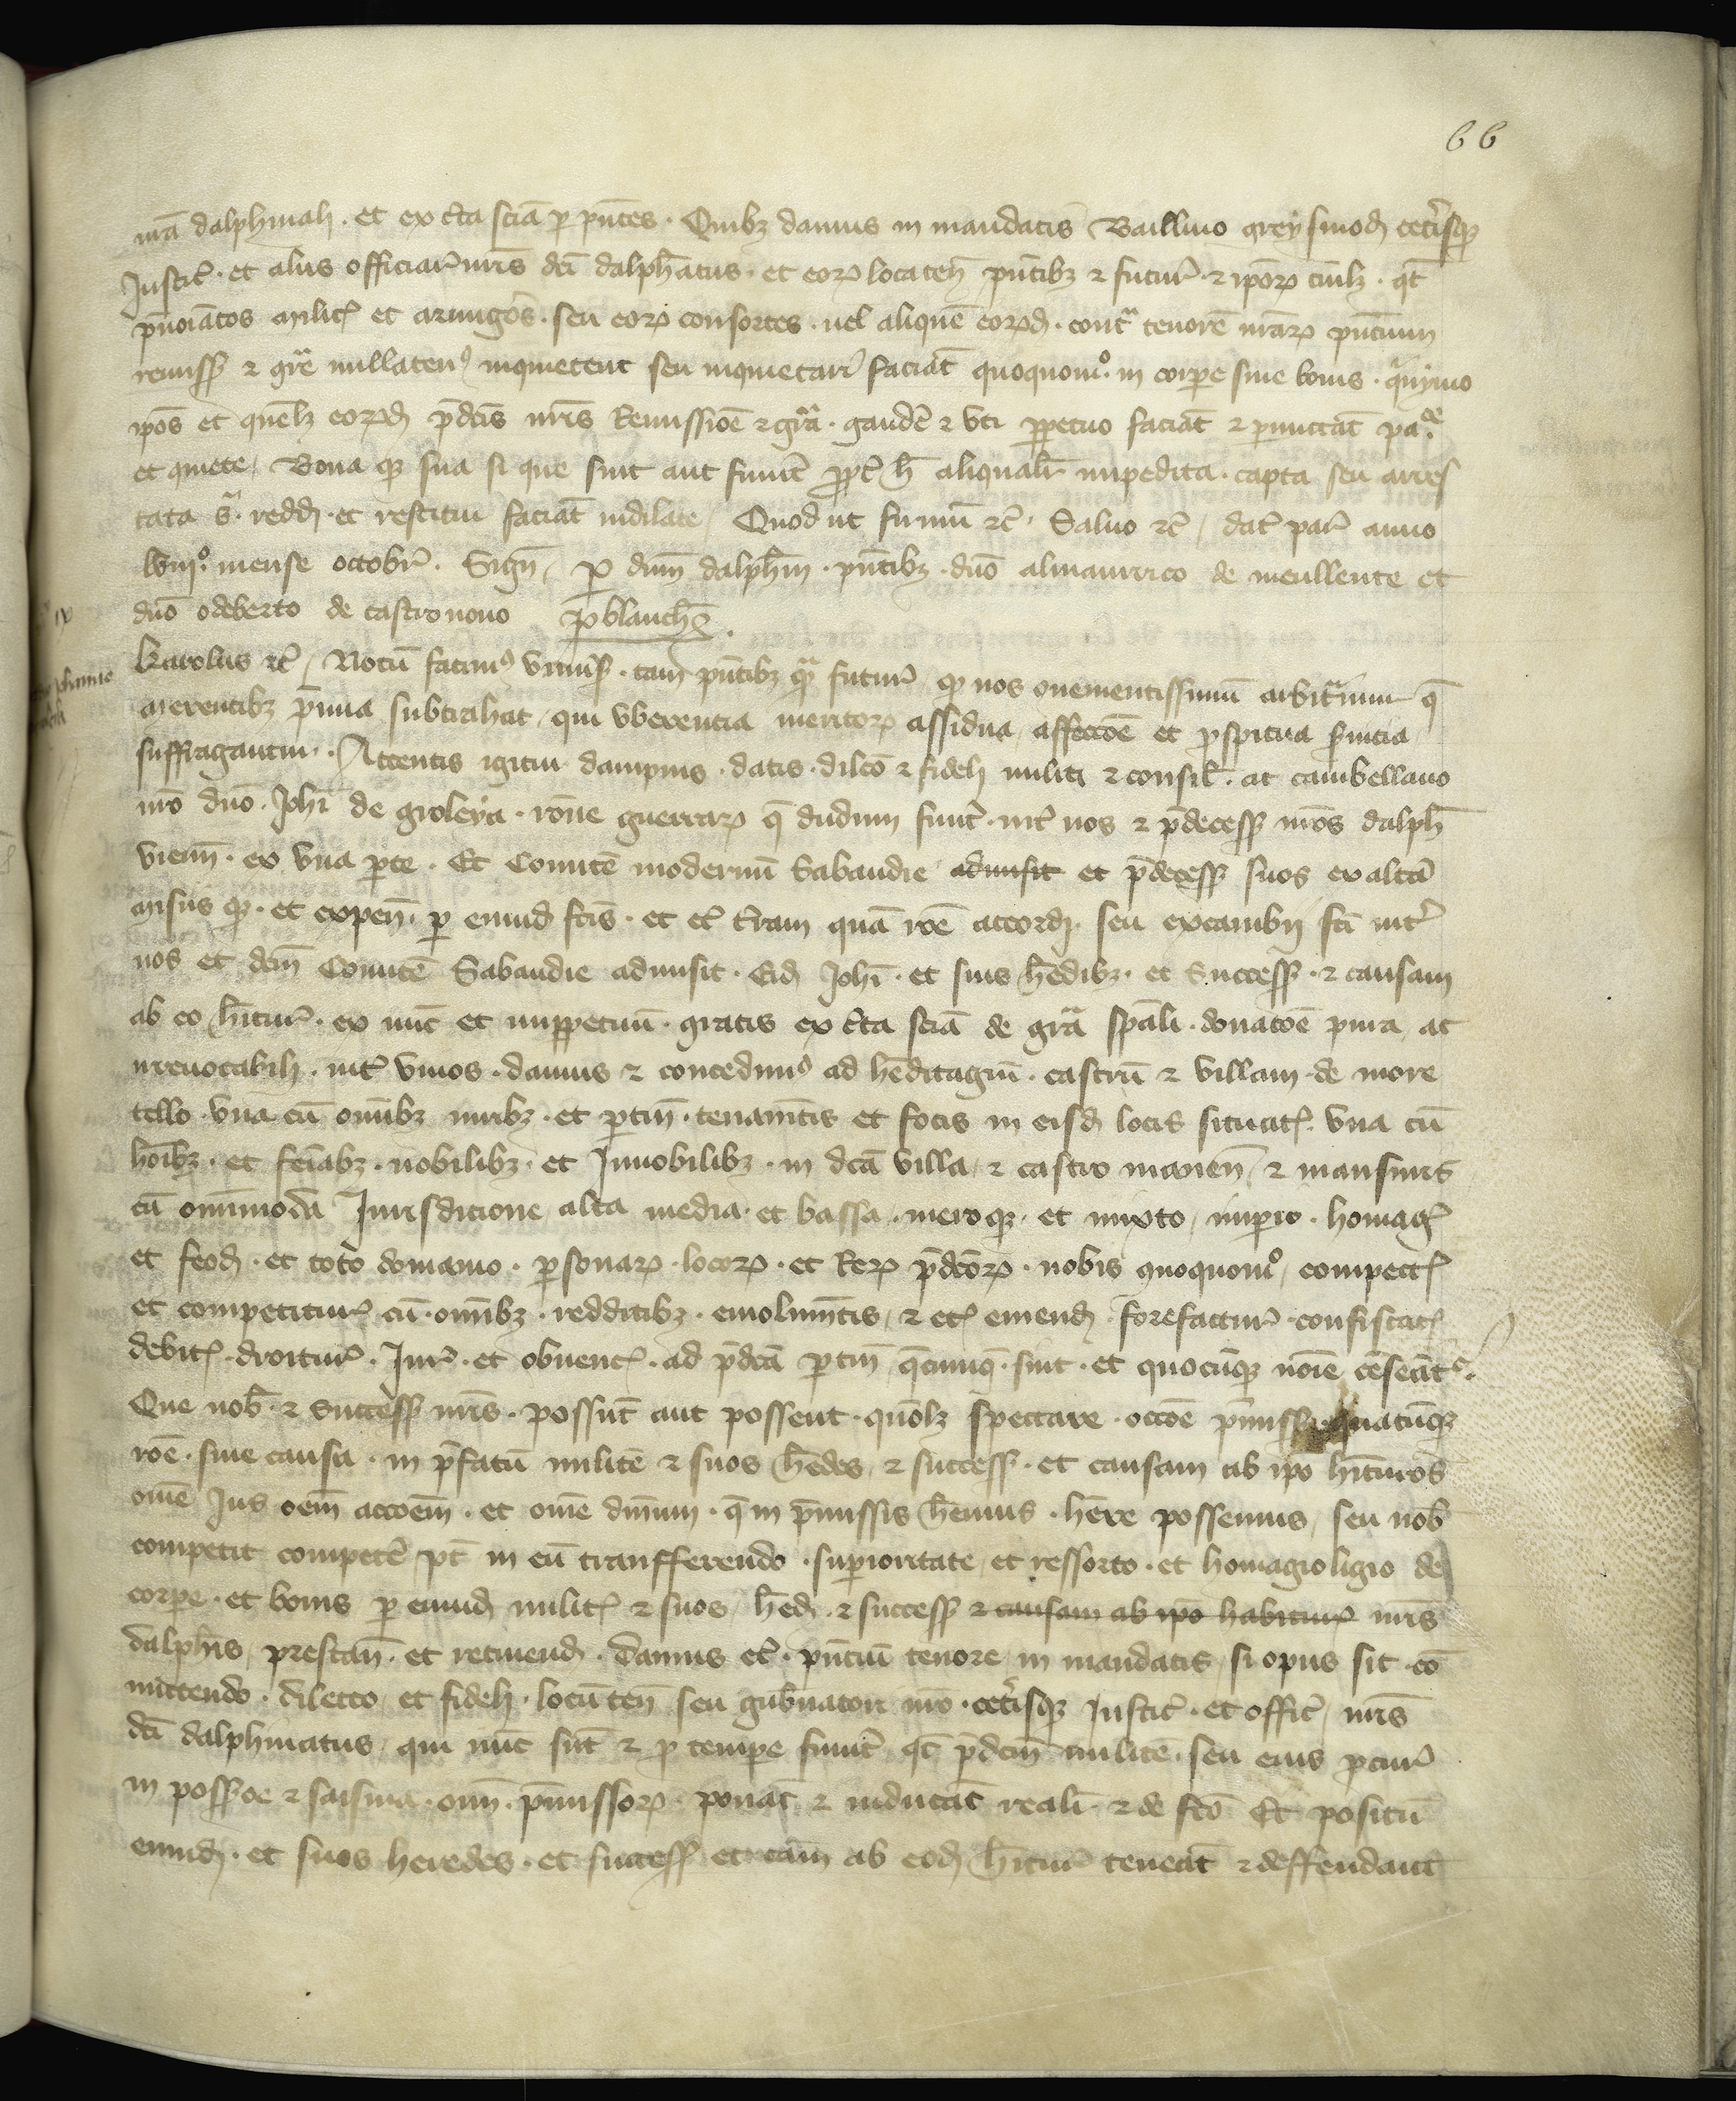 66
nrā dalphinali . et ex c̄ta sciā p pn̄tes . Quibꝫ damus in mandatis Baillivo greysivod̄ cet̄isqꝫ
Justic̄ . et aliis officiar̄ nr̄is dc̄i dalph̄atus . et eorꝝ locaten̄ pn̄tibꝫ ⁊ futur̄ . ⁊ ip̄orꝝ cuil̄ꝫ . qt̄
pn̄oīatos milit̄ et armigōs . seu eorꝝ consortes . vel aliquē eorꝝd̄ . contᵃ tenorē nr̄arꝝ pn̄tium
remiss̄ ⁊ gr̄e nullatenꝰ inquietent seu inquietari faciāt quoquomᵒ. in corpe sive bonis . qᵃnymo
ip̄os et quēlꝫ eorꝝd̄ p̄dc̄is nr̄is Remissiōe ⁊ grᵃ . gaudē ⁊ vti ppetuo faciāt ⁊ pmittāt pa.ᶜᵉ
et quiete / Bona qꝫ sua si que sint aut fuerīt ppt̄ h̄ aliqualit̄ impedita . capta seu arres
tata sᵃ . redd̄ . et restitui faciāt indilate / Quod ut firmū ⁊c̄ . Salvo ⁊c̄ / dat̄ par̄ anno
lviijᵒ. mense octobr̄ . Sign̄ / p dn̄m dalph̄m . pn̄tibꝫ . dn̄o almaurrico de meullente et
dn̄o odeberto de castronovo p blanchꝫ .
Karolus ⁊c̄ / Notū facimꝰ vnivs̄ . tam pn̄tibꝫ qᵃ futur̄ qꝫ nos
merentibꝫ p̄mia subtrahat / qui vberentia meritorꝝ assidua / affecc̄oē et pspicua s̄vicia
suffragantur . Attentis igitur dampnis . datis . dilc̄o ⁊ fideli militi ⁊ consil̄ . ac cambellano
nr̄o dn̄o . Joh̄i de groleya . rōne guerrarꝝ q̄ dudum fuer̄t . int̄ nos ⁊ p̄decess̄ nr̄os dalph̄
vienn̄ . ex vna pte . Et Comitē modernū Sabaudie admisit et p̄decess̄ suos ex altā
misiis qꝫ . et expen̄ . p eumd̄ fc̄is . et ec̄ t̄ram quā rōe accord̄ . seu excambij fc̄i int̄
nos et dc̄m Comitē Sabaudie admisit . Eid̄ Joh̄i . et suis h̄edibꝫ . et Success̄ . ⁊ causam
ab eo h̄itur̄ . ex nūc et imppetuū . gratis ex c̄ta sciā de grᵃ spāli . donac̄oē pura / ac
irrevocabili . int̄ vivos . damus ⁊ concedimꝰ ad h̄editagiū . castrū ⁊ villam de more
tello . vna cū om̄ibꝫ iuribꝫ . et ptin̄ . tenamt̄is et focis in eisd̄ locis situat̄ . vna cū
hoībꝫ . et femīabꝫ . nobilibꝫ . et Innobilibꝫ . in dc̄a villa / ⁊ castro manen̄ / ⁊ mansuris
cū omnimoda Jurisdicione / alta media . et bassa . meroqꝫ . et mixto / impio . homaḡ
et feod̄ . et toto domanio . psonarꝝ . locorꝝ . et Rerꝝ p̄dc̄orꝝ . nobis quoquomᵒ / compet̄
et competitur̄ . cū . om̄ibꝫ . redditibꝫ . emolumt̄is / ⁊ ec̄ emend̄ . forefactur̄ . confiscat̄
debit̄ . droitur̄ . Jur̄ . et obvent̄ . ad p̄dc̄a ptin̄ q̄cūqꝫ . sint . et quocūqꝫ noīe cēseāt̄ .
Que nob̄ . ⁊ success̄ nr̄is . possūt aut possent . quōlꝫ spectare . occōe p̄miss̄ . quacūqꝫ
rōe . sive causa . in p̄fatū militē ⁊ suos h̄edes / ⁊ success̄ . et causam ab ip̄o h̄ituros
om̄e Jus oēm accōem . et om̄e dn̄ium . q̄ in p̄missis h̄emus . h̄ere possemus / seu nob̄
competit compete p̄t in eū transferendo . supioritate / et ressorto . et homagio ligio de
corpe . et bonis p eumd̄ milit̄ ⁊ suos / h̄ed̄ . ⁊ success̄ ⁊ causam ab ip̄o habitur̄ nr̄is
dalph̄is / prestan̄ . et retinend̄ . damus ec̄ . pn̄tiū tenore / in mandatis / si opus sit . co
mittendo . dilecto / et fideli . locūten̄ seu gub̄natori nr̄o . cet̄isqꝫ Justic̄ . et offic̄ / nr̄is
dc̄i dalphinatus / qui nūc sūt ⁊ p tempe fuer̄t qt̄ p̄dc̄m militē . seu eius pcur̄
in poss̄oe ⁊ saisina . om̄i . p̄missorꝝ . ponāt ⁊ inducāt realit̄ . ⁊ de fc̄o Et positū
eumd̄ . et suos heredes . et success̄ et cām ab eod̄ h̄itur̄ teneāt ⁊ deffendant